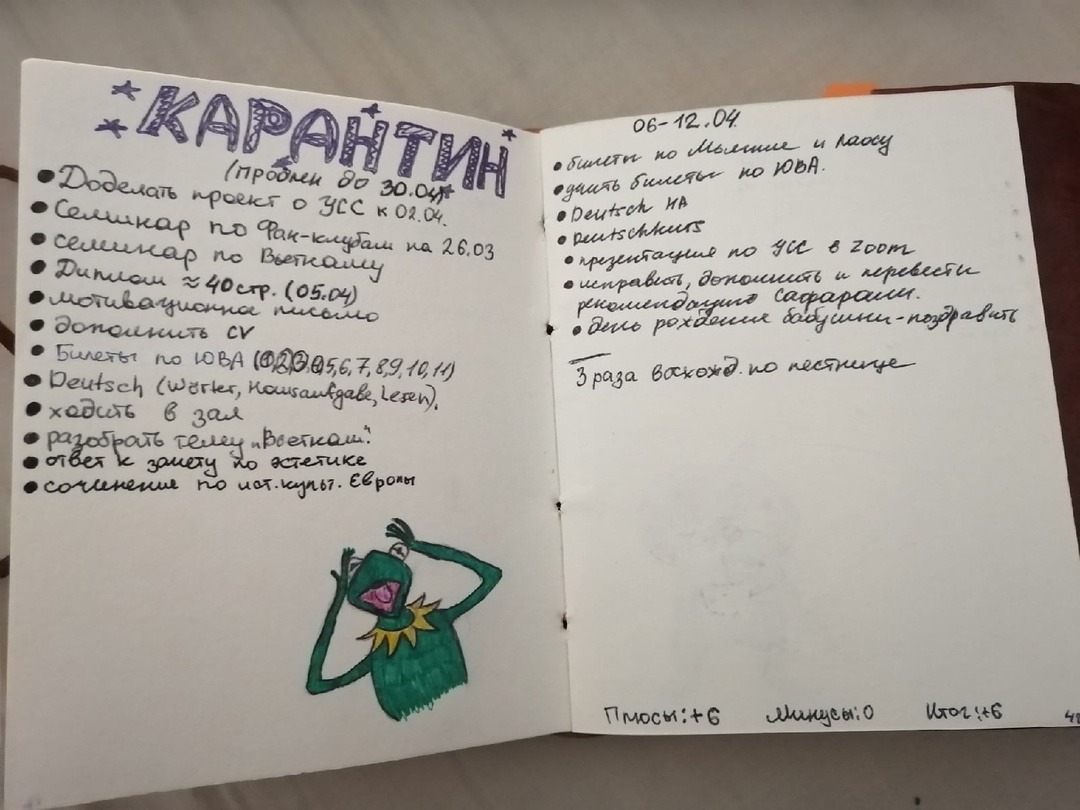 КАРАНТИН
(продлен до 30.04)
Доделать проект о УСС к 02.04.
Семинар по Фан-клубам на 26.03
семинар по Вьетнаму
Диплом ≈ 40 стр. (05.04)
мотивационна письмо
дополнить CV
Билеты по ЮВА (1,2,3,4,5,6,7,8,9,10,11)
Deutsch (Wörter, Hausaufgabe, Lesen).
ходить в зал
разобрать тему „Вьетнам".
ответ к зачету по эстетике
сочинение по ист. культ. Европы
06-12.04
билеты по Мьянме и Лаосу
учить билеты по ЮВА.
Deutsch HA
Deutschkurs
презентация по УСС в Zoom
исправить, дополнить и перевести
рекомендацию Сафарали.
день рождения бабушки - поздравить
3 раза восхожд. по лестнице
Плюсы: +6 Минусы: 0 Итог: +6